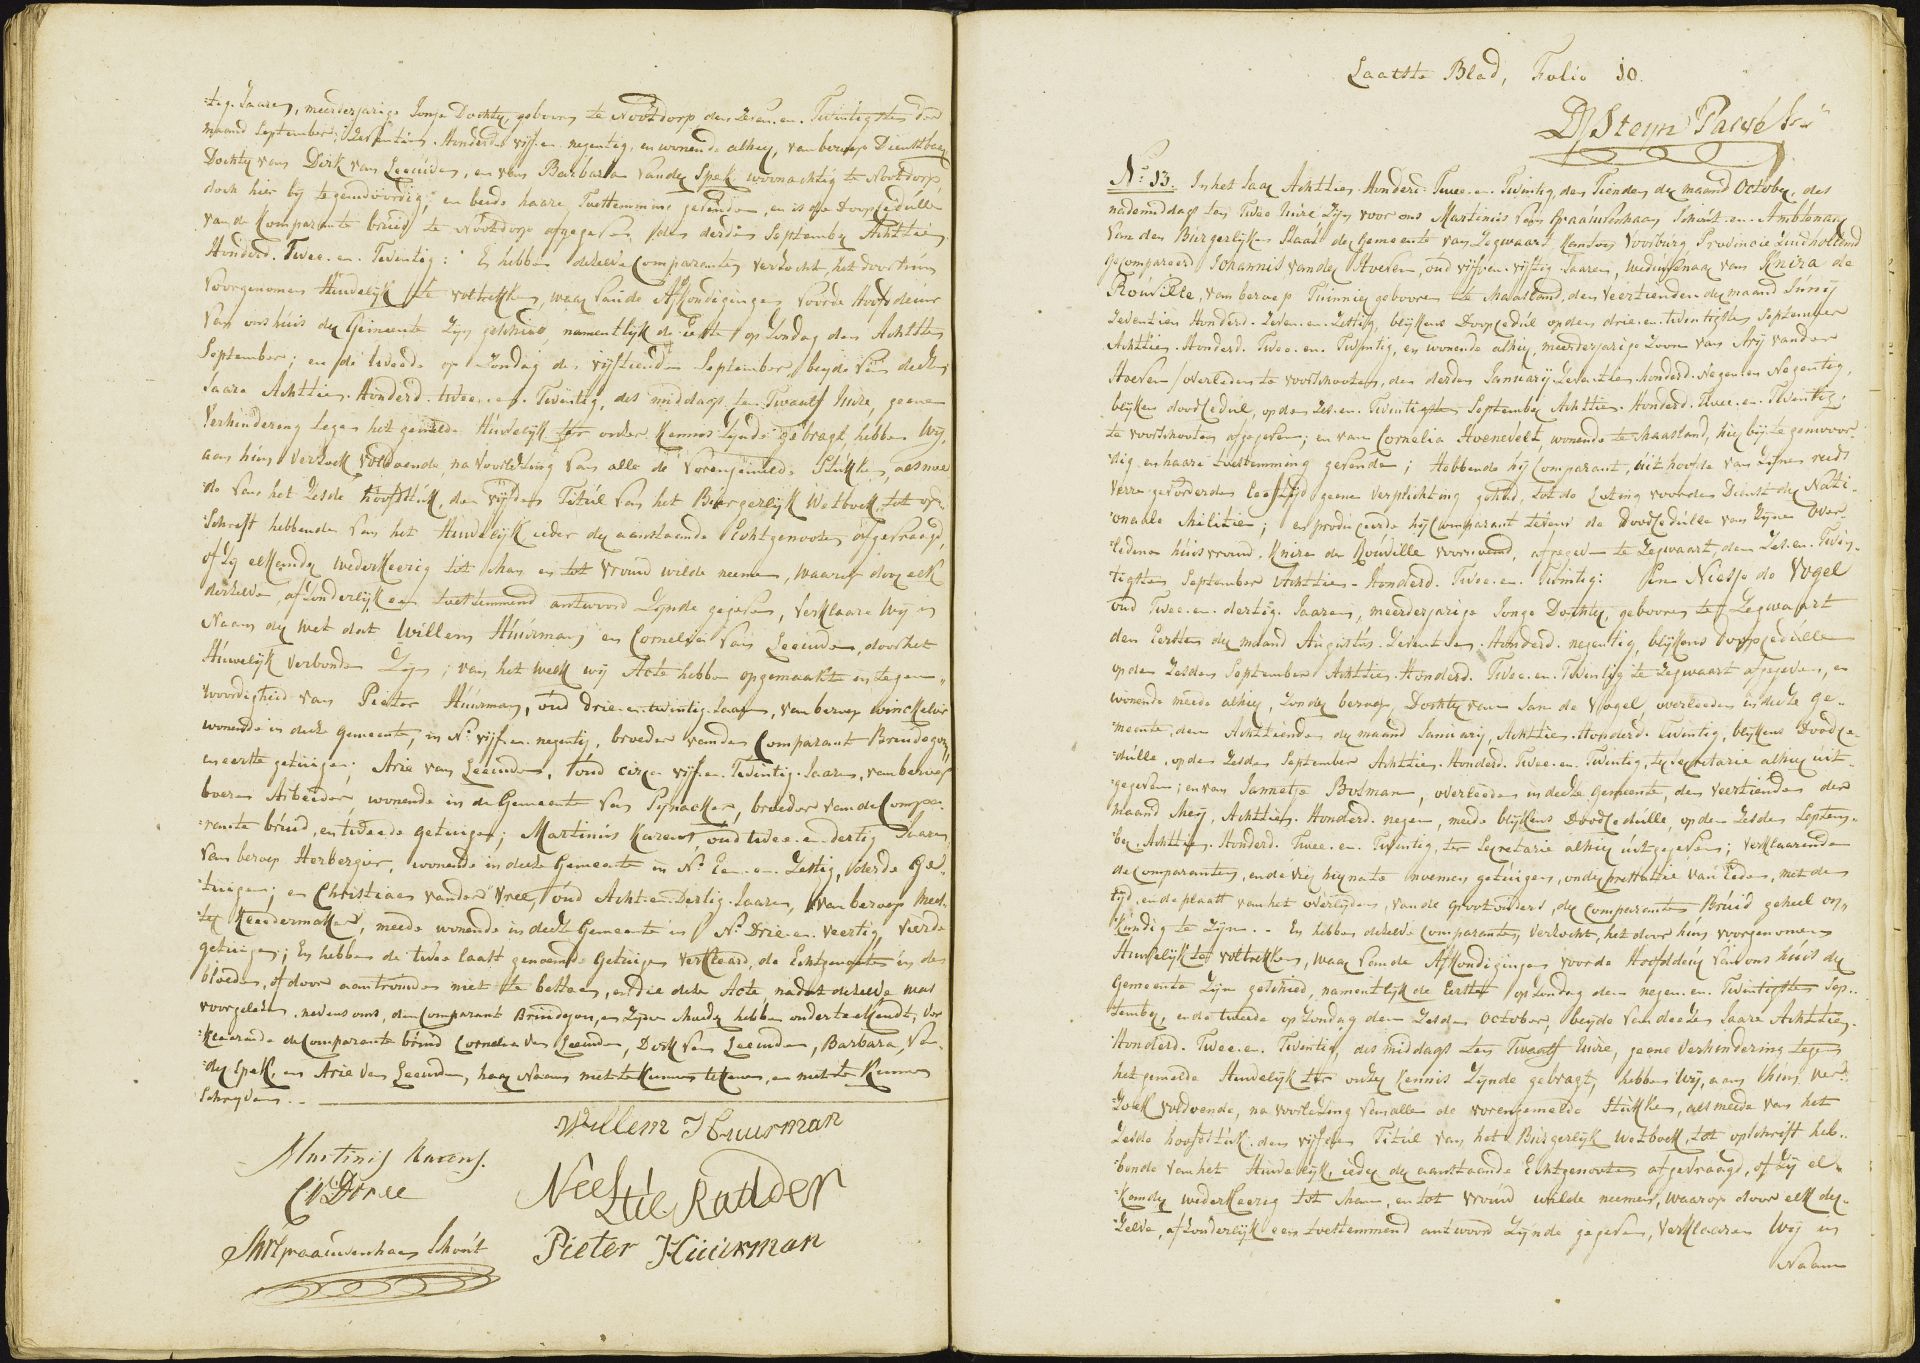 :tig Jaaren, meerderjarige Jonge Dochter, gebooren te Nootdorp den Zeven. en. Twintigsten der
maand September Zeventien. Honderd. vijf. en. negentig, en wonende alhier, van beroep Dienstbaar
Dochter van Dirk van Leeuwden, en van Barbara vander Spek woonachtig te Nootdorp,
doch hier bij tegenwoordig, en beide haare Toestemming gevende, en is de Doop Cedulle
van de Comparante bruid te Nootdorp afgegeven, den derden September Achttien
Honderd. Twee. en. Twintig: En hebben dezelve Comparanten verzocht, het door hun
voorgenomen Huwelijk te voltrekken, waar van de Afkondigingen voor de Hoofddeur
van ons huis der Gemeente Zijn geschied, namentlijk de Eerste op Zondag den Achtsten
September; en de tweede op Zondag den vijftienden September, beyde van dezen
Jaare Achttien. Honderd. twee. en. Twintig, des middags ten Twaalf Uure, geene
Verhindering tegen het gemelde Huwelijk ter onzer kennis Zijnde gebragt, hebben Wij,
aan hun Verzoek voldoende, na voorlezing van alle de vorengemelde Stukken, als mee
:de van het Zesde hoofdstuk, den vijfden Titul van het Burgerlijk Wetboek, tot op-
:schrift hebbende van het Huwelijk ieder der aanstaande Echtgenooten afgevraagd,
of Zij elkander wederkeerig tot Man en tot vrouw wilde neemen, waarop door elk
derzelve, afzonderlijk een toestemmend antwoord Zijnde gegeven, verklaare Wij in
Naam der wet dat Willem Huurman en Cornelia van Leeuwden, door het
Huwelijk verbonden Zijn; van het welk wij Acte hebben opgemaakt in tegen-
:woordigheid van Pieter Huurman, oud drie-en-twintig Jaaren, van beroep winckelier
wonende in deze gemeente, in No. vijf. en. negentig, broeder van den Comparant Bruidegom,
en eerste getuigen; Arie van Leeuwden, oud circa vijf. en. Twintig. Jaaren, van beroep
boeren Arbeider, wonende in de Gemeente van Pijnacker, broeder van de Compa-
:rante bruid, en tweede getuigen; Martinus Karens, oud twee. en. dertig Jaaren
van beroep Herbergier, wonende in deze Gemeente in No. Een. en. Zestig, derde ge-
:tuigen; en Christiaan vander Vree, oud Acht. en. Dertig. Jaaren, van beroep Mees-
:ter kleedermaker, meede wonende in deze Gemeente in No. Drie. en. veertig, vierde
getuigen; En hebben de twee laast genoemde Getuigen verklaard, de Echtgenooten in den
bloeden, of door aantrouwen niet te bestaan, en die deze Acte, nadat dezelve was
voorgelezen, nevens ons, den Comparant Bruidegom, en Zijne Moeder hebben onderteekendt, Ver
:klaarende de Comparante bruid Cornelia van Leeuwden, Dirk van Leeuwden, Barbara Van-
:der Spek, en Arie van Leeuwden, haar Naam niet te kunnen tekenen, en niet te kunnen
Schrijven. -
Willem Huurman
Martinus Karens.
CV Dvree
Neeltie Radder
MvSpraauwenhaan Schout
Pieter Huurman
Laatste Blad, Folio 10.
No. 13. In het Jaar Achttien Honderd. Twee. en. Twintig, den Tienden der maand October, des
nademiddags ten Twee Uure Zijn voor ons Martinus van Spraauwenhaan Schout. en. Amblenaar
van den Burgerlijken Staat der Gemeente van Zegwaart kanton Voorburg Provincie Zuidholland
gecompareerd Johannis vander Hoeven, oud vijf. en. vijftig Jaaren, weduwenaar van Knira de
Rouville, van beroep Tuinnier gebooren te Maasland, den veertienden der maand Junij
Zeventien Honderd. Zeven. en. Zestig, blijkens Doop Cedul op den drie. en. twintigsten September
Achttien. Honderd. Twee. en. Twintig, en wonende alhier, meerderjarige Zoon van Arij vander
Hoeven / overleden te Voorschooten, den derden January Zeventien. honderd. Negen. en Negentig,
blijkens dood Cedul, op den Zes. en. Twintigsten September Achttien. Honderd. Twee. en. Twintig,
te voorschooten afgegeven; en van Cornelia Hoenevelt, wonende te Maasland, hier bij tegenwoor-
:dig en haare toestemming gevende; Hebbende hij Comparant, uit hoofde van Zijnen reeds
verre gevorderden leeftijd geene verplichting gehad, tot de Loting voor den Dienst der Nati-
:onaale Militie; en produceerde hij Comparant tevens de Dood Cedulle van Zijne over-
:ledene huisvrouw Knira de Rouville voornoemd, afgegeven te Zegwaart, den Zes. en. Twin-
:tigsten September Achttien. Honderd. Twee. en. Twintig: En Niesje de Vogel
oud Twee. en. dertig. Jaaren, meerderjarige Jonge Dochter, gebooren te Zegwaart
den Eersten der maand Augustus Zeventien. Honderd. negentig, blijkens Doop Cedulle
op den Zesden September Achttien. Honderd. Twee. en. Twintig te Zegwaart afgegeven, en
wonende meede alhier, Zonder beroep, Dochter van Jan de Vogel, overleeden in deeze Ge-
:meente, den Achttienden der maand January, Achttien. Honderd. Twintig, blijkens Dood Ce-
:dulle, op den Zesden September Achttien. Honderd. Twee. en. Twintig, ter secretarie alhier uit-
:gegeven; en van Jannetje Bosman, overleeden in deeze Gemeente, den veertienden der
maand Meij, Achttien. Honderd. negen, meede blijkens Dood Cedulle, op den Zesden Septem-
:ber, Achttien. Honderd. Twee. en. Twintig, ter Secretarie alhier uitgegeven; verklaarende
de Comparanten, en de vier hier na te noemen getuigen, onder prestatie van Eeden, met den
tijd, en de plaats van het overlijden, van de grootouders, der Comparanten Bruid geheel on-
:kundig te Zijn. - En hebben dezelve Comparanten, Verzocht, het door hun voorgenomen
Huwelijk te voltrekken, waar van de Afkondigingen voor de Hoofddeur van ons huis der
Gemeente Zijn geschied, namentlijk de Eerste op Zondag den negen. en. Twintigsten Sep-
:tember, en de tweede op Zondag den Zesden October, beyde van deezen Jaare Achttien.
Honderd. Twee. en. Twintig, des middags ten Twaalf Uure, geene Verhindering tegen
het gemelde Huwelijk ter onzer kennis Zijnde gebragt, hebben Wij, aan hun ver-
:zoek voldoende, na voorlezing van alle de vorengemelde Stukken, als meede van het
Zesde hoofdstuk, den vijfden Titul van het Burgerlijk Wetboek, tot opschrift heb-
:bende van het Huwelijk, ieder der aanstaande Echtgenooten afgevraagd, of Zij el-
:kander wederkeerig tot Man, en tot vrouw wilde neemen, waarop door elk der-
:zelve, afzonderlijk een toestemmend antwoord Zijnde gegeven, verklaaren Wij in
Naam